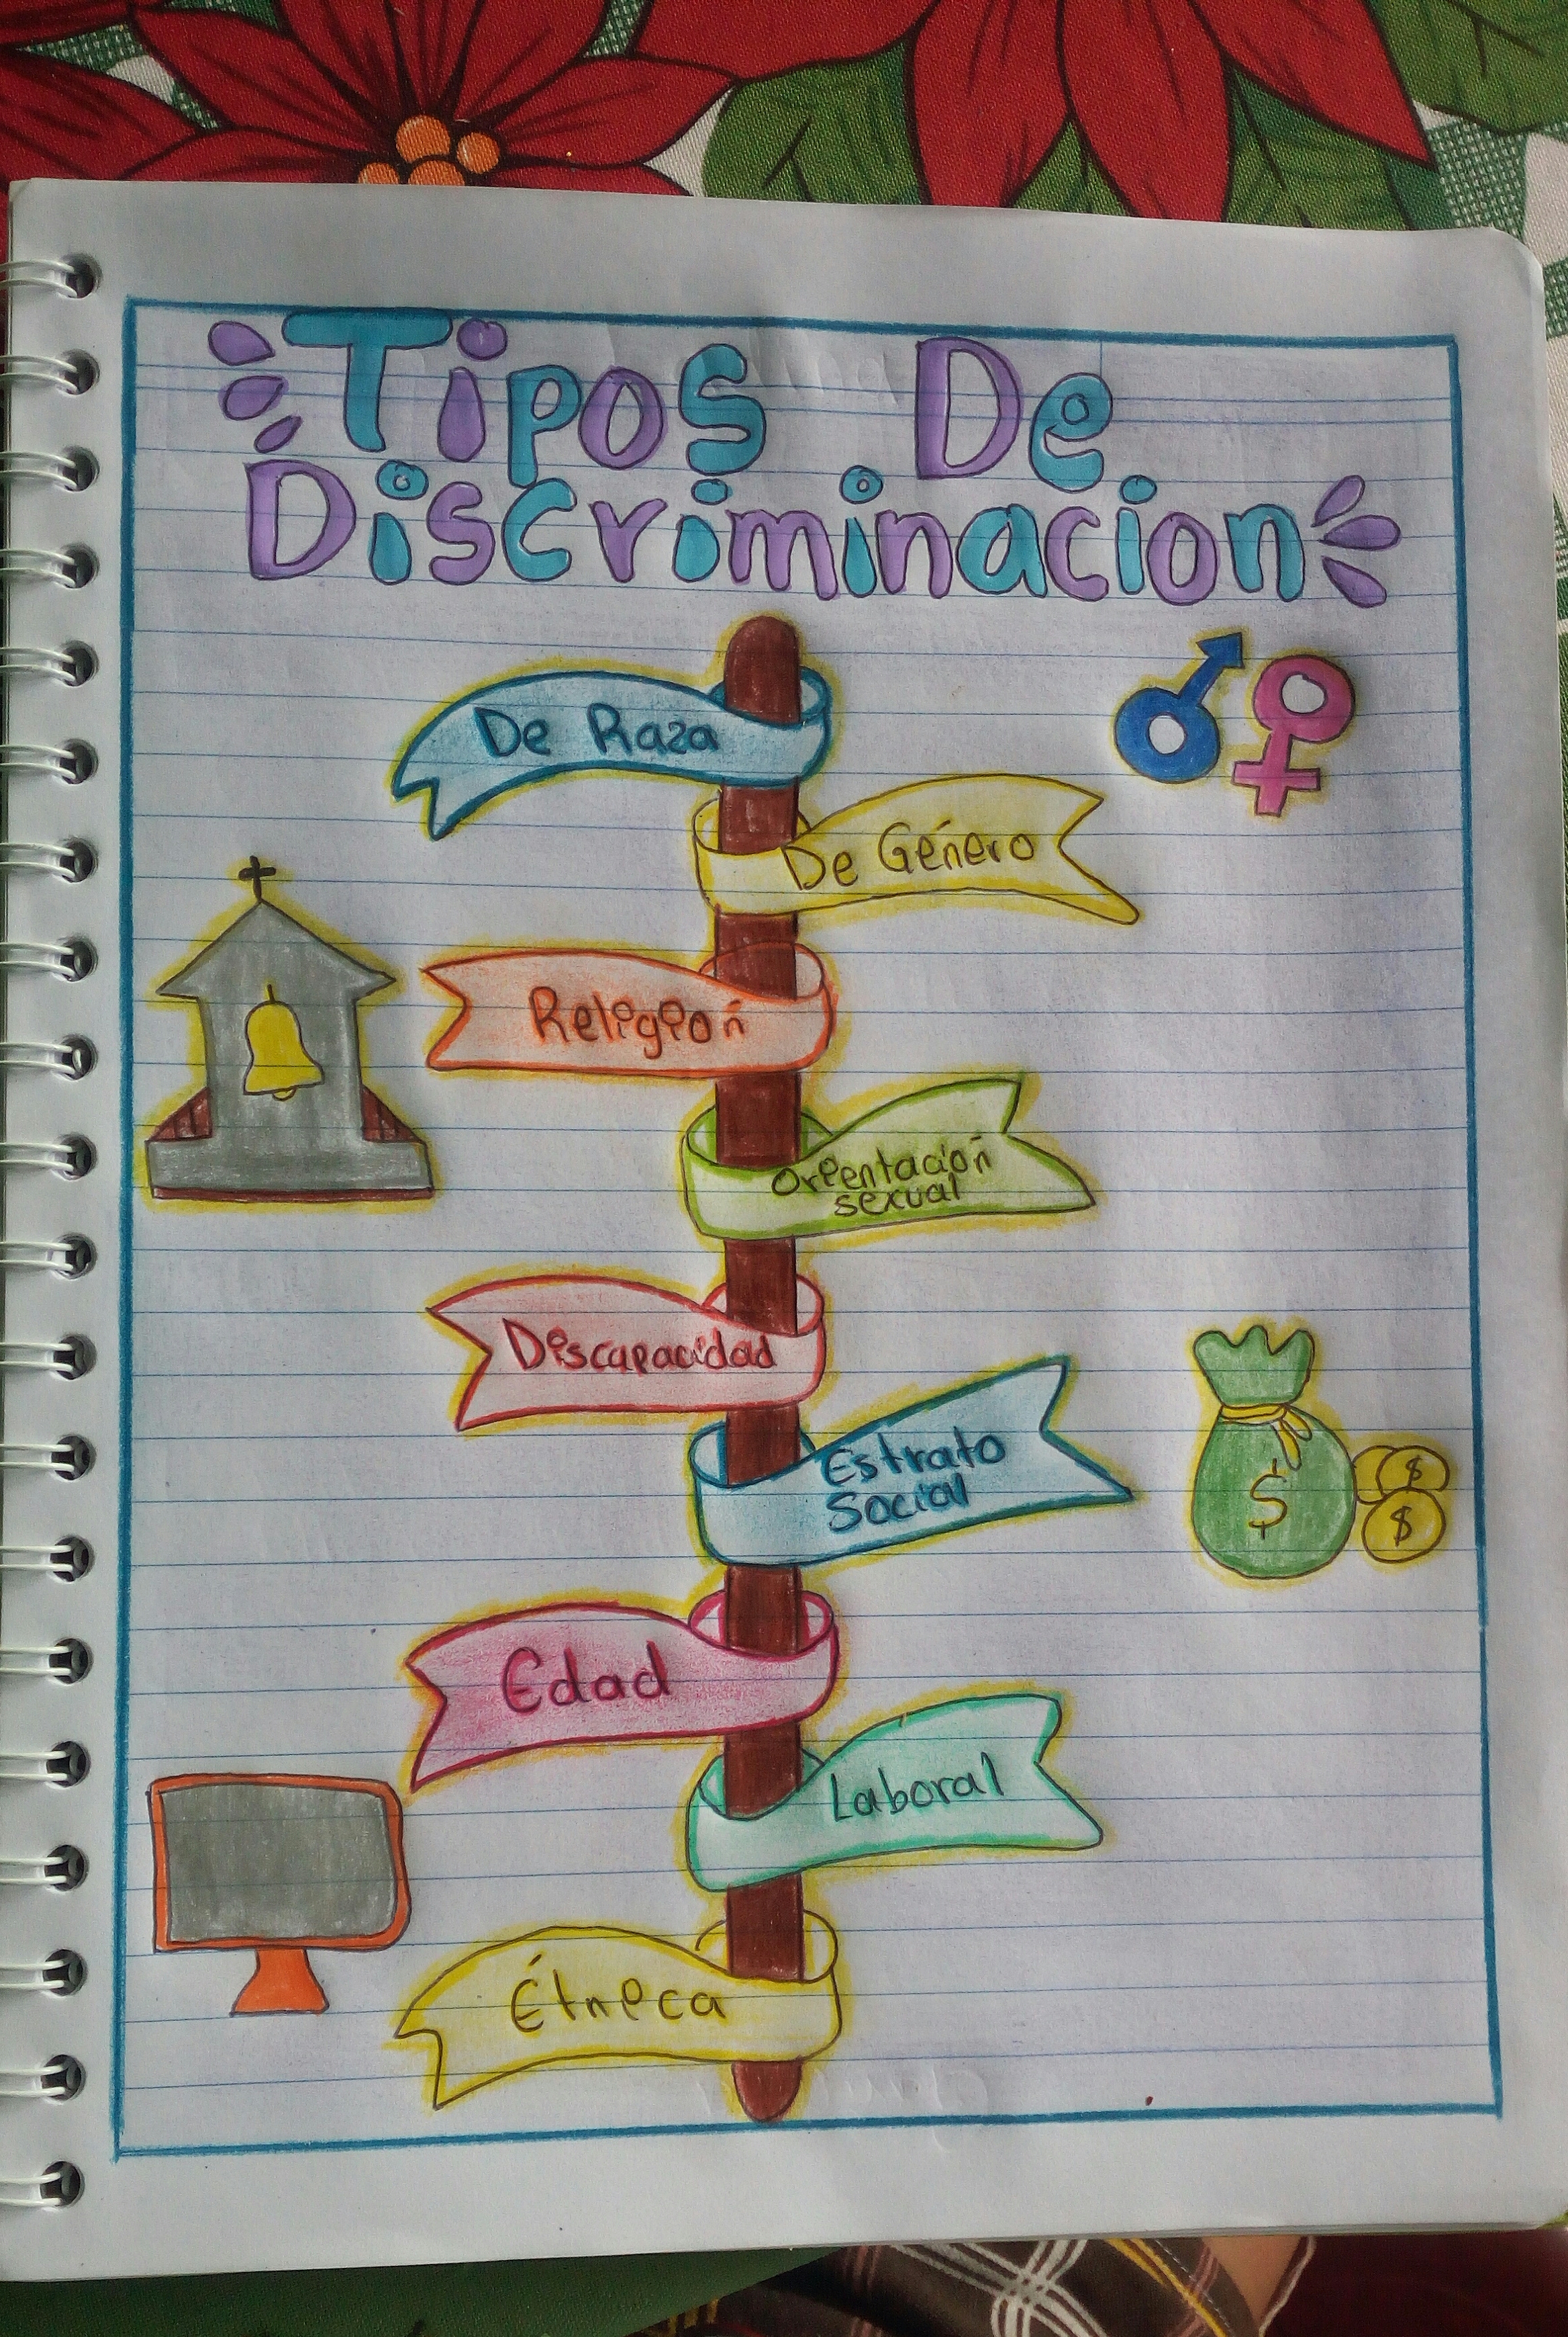 Tipos De
Discriminacion
De Raza
De Género
Religión
Orientación
sexual
Discapacidad
Estrato
Social
$
$
$
Edad
Laboral
Étnica